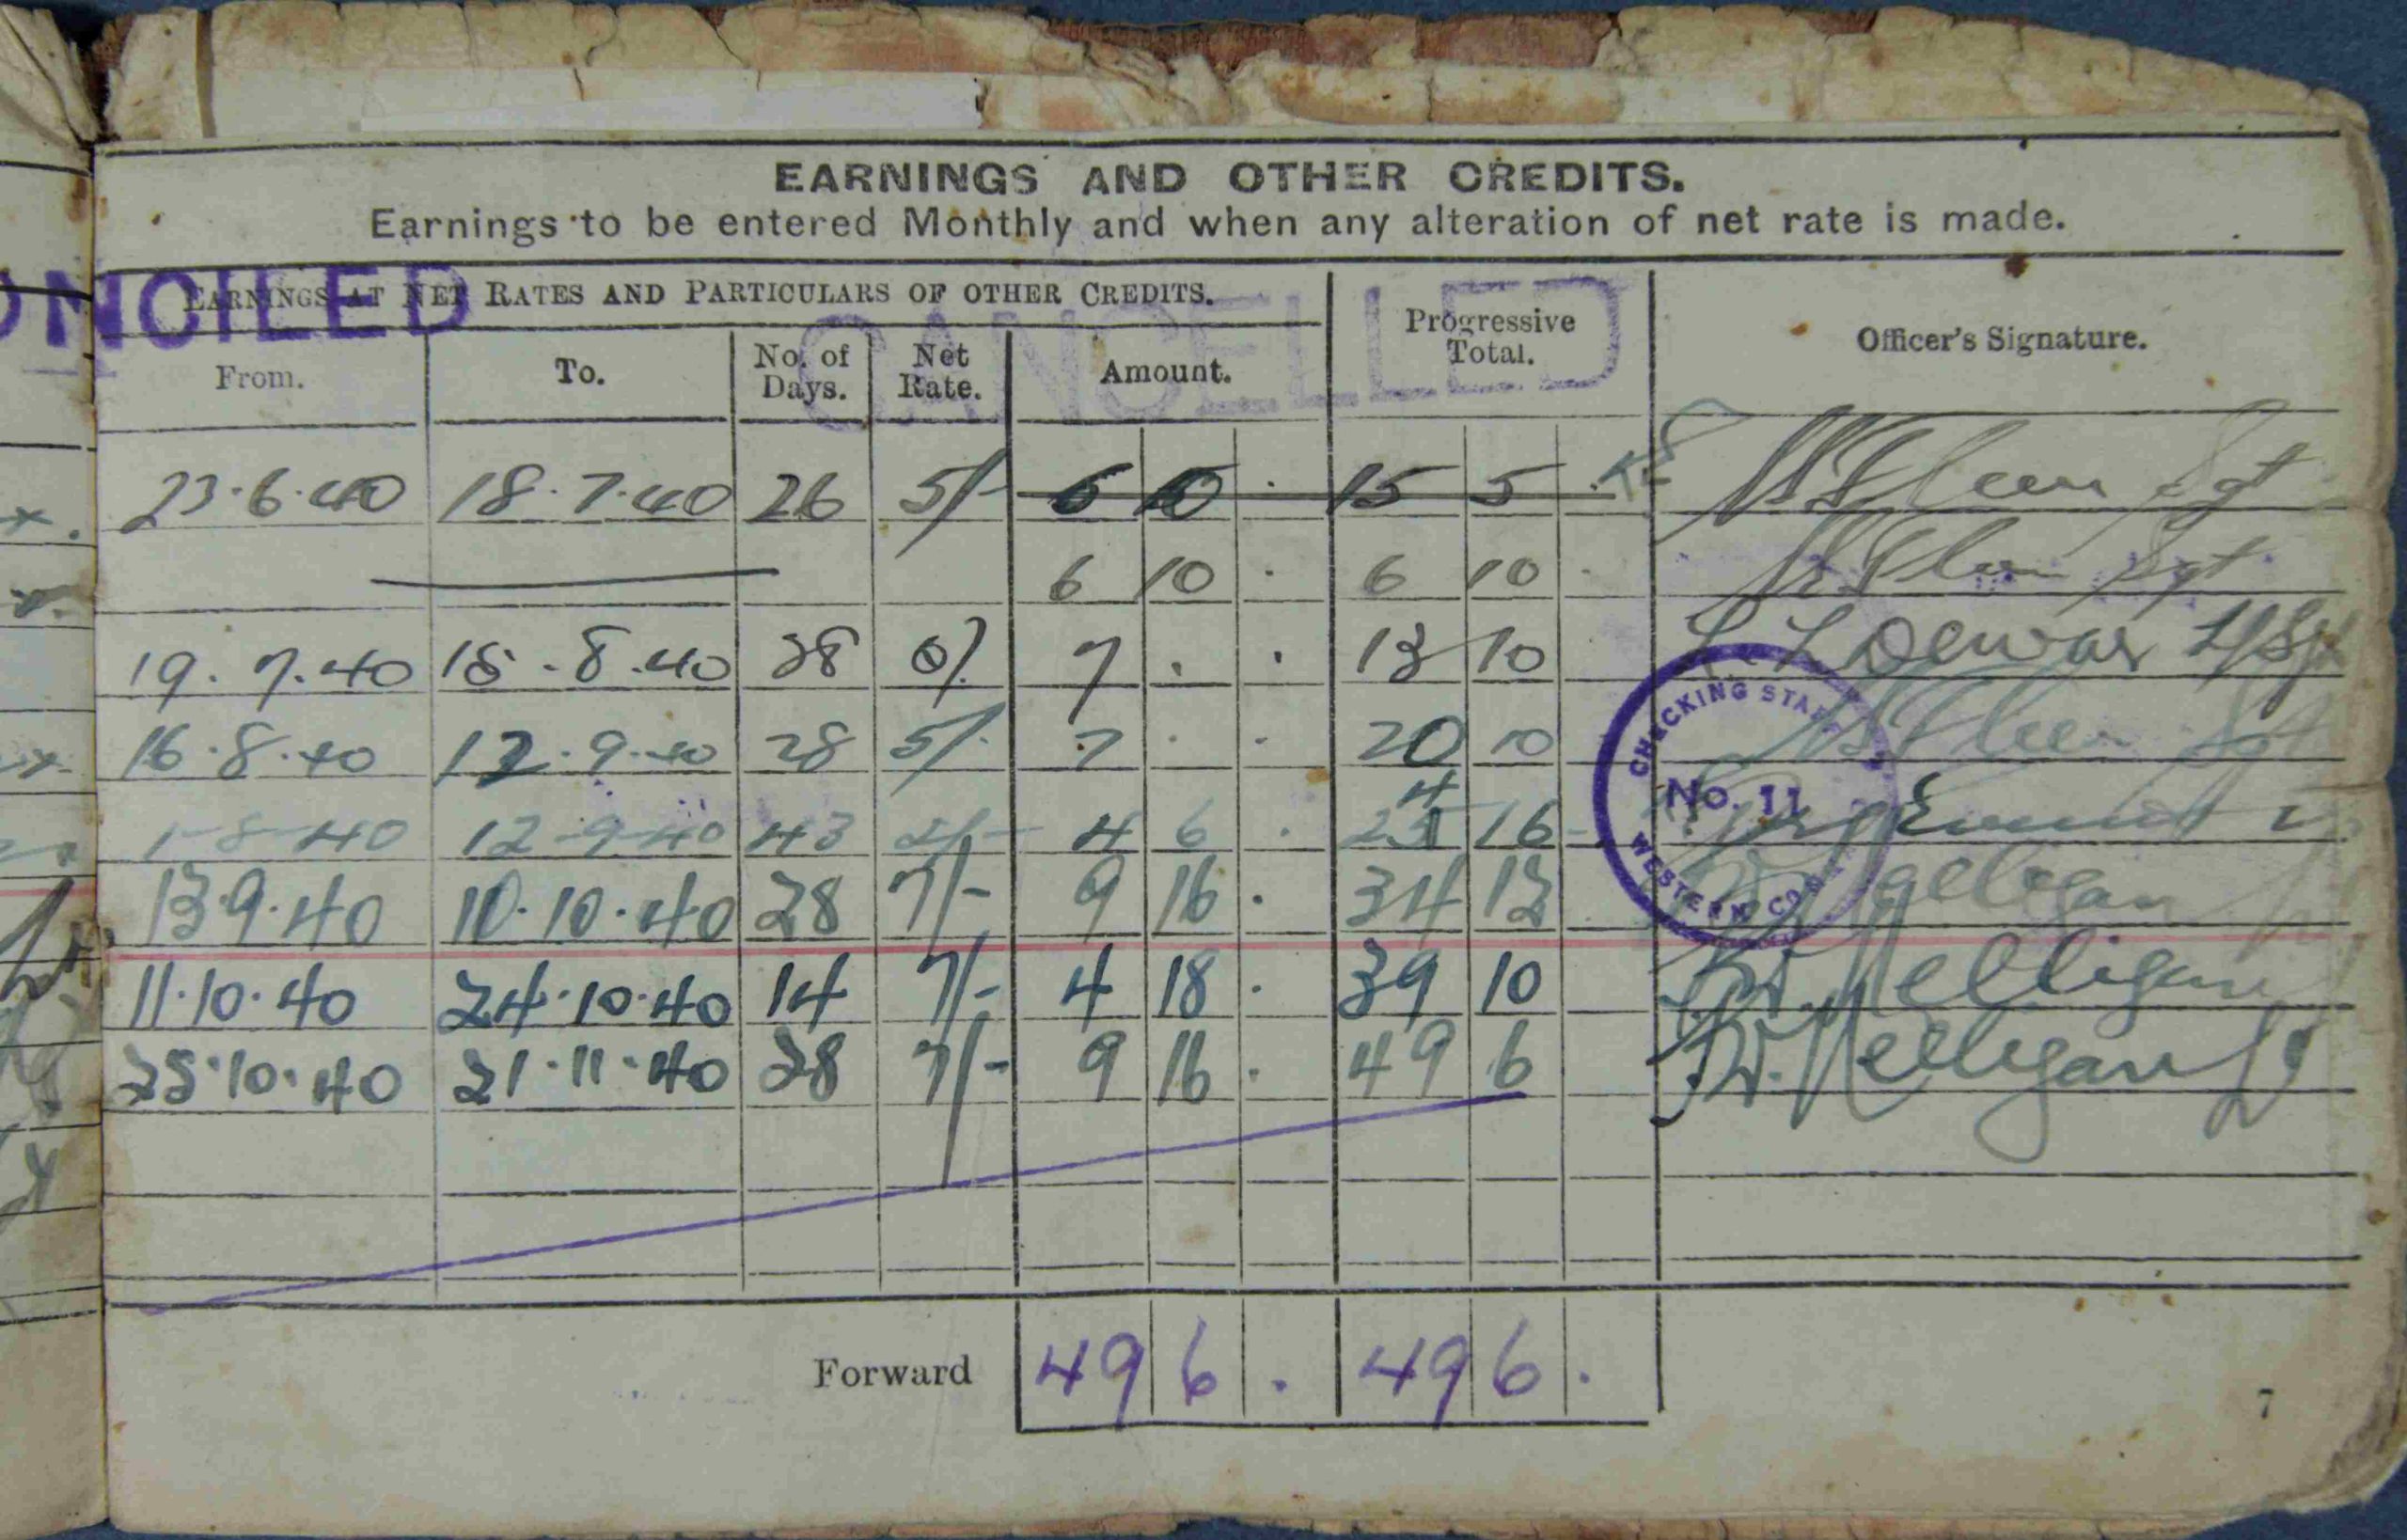 EARNINGS AND OTHER CREDITS.
Earnings to be entered Monthly and when any alteration of net rate is made.
ONCILED
EARNINGS AT NET RATES AND PARTICULARS OF OTHER CREDITS.
CANCELLED
From. To. No. of Days. Net Rate. Amount. Progressive Total. Officer's Signature.
23.6.40 18.7.40 26 5/- 15 5 . Sgt
6 10 . 6 10 . Sgt
19.7.40 15.8.40 28 5/. 7 . . 13 10 Dewar
16.8.40 12.9.40 28 5/. 7 . . 20 10
CHECKING STAFF
No. 11
WESTERN
1-8-40 12-9-40 43 2/- 4 6 . 24 16
13.9.40 10.10.40 28 7/- 9 16 . 34 12
11.10.40 24.10.40 14 7/- 4 18 . 39 10
25.10.40 21.11.40 28 7/- 9 16 . 49 6
Forward 49 6 . 49 6 .
7